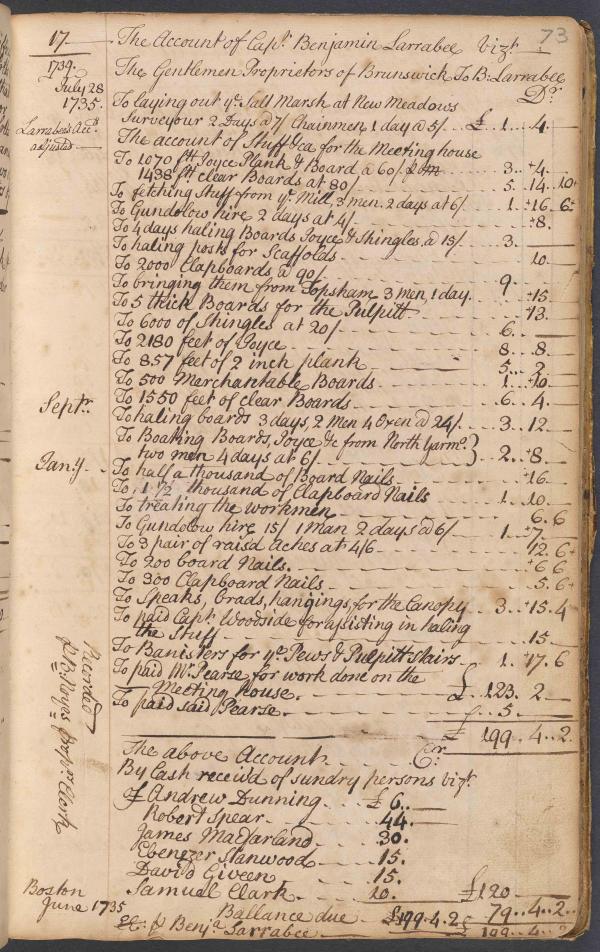 73
17
The Account of Capt. Benjamin Larrabee Vizt.
1739.
The Gentlemen Proprietors of Brunswick To B: Larrabee
Dr.
July 28
1735.
To laying out ye. Salt Marsh at New Meadows
Surveyour 2 Days a 7/ Chainmen 1 day a 5/ £ 1 .. 4
Larrabee's Acct.
adjusted
The account of Stuff &ca for the Meeting house
To 1070 ft Joyce Plank & Board a 60/ 3 .. 4
1438 ft clear Boards at 80/ 5 . 14 . 10
To fetching Stuff from ye. Mill 3 men. 2 days at 6/ 1 . 16 . 6
To Gundolow hire 2 days at 4/ 8
To 4 days haling Boards Joyce & Shingles, a 15/ 3
To haling posts for Scaffolds 10
To 2000 Clapboards a 90/ 9
To bringing them from Topsham 3 Men, 1 day 15
To 5 thick Boards for the Pulpitt 13
To 6000 of Shingles at 20/ 6
To 2180 feet of Joyce 8 .. 8
To 857 feet of 2 inch plank 5 .. 2
To 500 Merchantable Boards 1 . 10
To 1550 feet of clear Boards 6 . 4
Septr.
To haling boards 3 days, 2 Men 4 Oxen a 24/ 3 . 12
To Boating Boards, Joyce &c from North Yarmo. }
two men 4 days at 6/ 2 . 8
Jany.
To half a thousand of Board Nails 16
To 1 1/2 thousand of Clapboard Nails 1 . 10
To treating the workmen 6 . 6
To Gundolow hire 15/ 1 Man 2 days a 6/ 1 . 7
To 3 pair of raisd Aches at 4/6 12 . 6
To 200 board Nails. 6 6
To 300 Clapboard Nails 5 . 6
To Speaks, brads, hangings, for the Canopy 3 . 15 . 4
To paid Capt. Woodside for assisting in haling
the Stuff 15
To Banisters for ye. Pews & Pulpitt Stairs 1 . 17 . 6
To paid Mr. Pearse for work done on the
Meeting house. £ 123 . 2
To paid said Pearse. £ .. 5
£ 199 .. 4 .. 2
Recorded
Clerk
The above Account Cr.
By Cash receiv'd of sundry persons vizt.
of Andrew Dunning £ 6
Robert Spear 44.
James Macfarland 30.
Ebenezer Stanwood 15.
David Giveen 15.
Samuel Clark 10. £120
Boston
June 1735
Ballance due £199.4.2 79 .. 4 .. 2
Benja. Larrabee £ 199 .. 4 .. 2